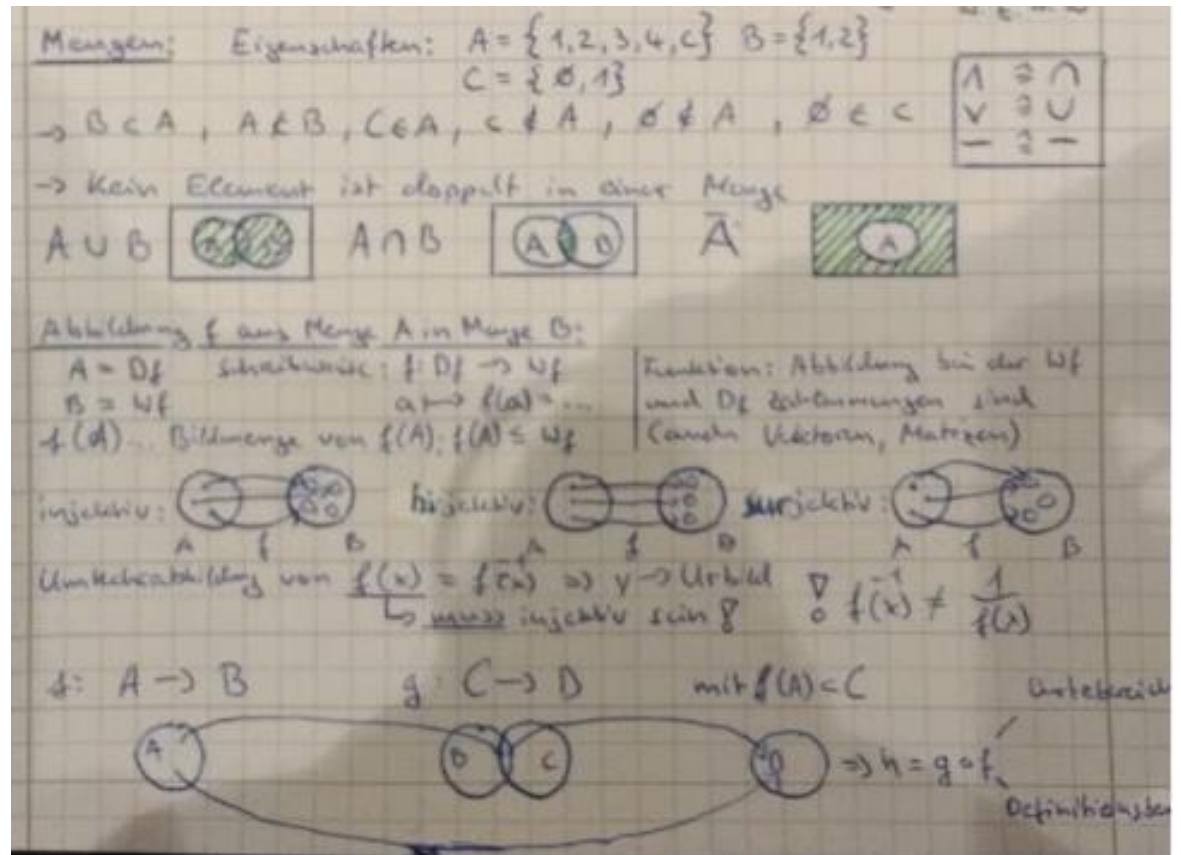 Mengen: Eigenschaften: A = {1,2,3,4,C} B = {1,2}
C = {Ø,1}
→ B ⊂ A, A ⊄ B, C ∈ A, c ∉ A, Ø ∉ A, Ø ∈ C
∧ ≙ ∩
∨ ≙ ∪
― ≙ ―
→ Kein Element ist doppelt in einer Menge
A ∪ B A ∩ B A B Ā A
Abbildung f aus Menge A in Menge B:
A = Df Schreibweise: f: Df → Wf
B = Wf a ↦ f(a) = ...
f(A)... Bildmenge von f(A); f(A) ≤ Wf
Funktion: Abbildung bei der Wf
und Df sind
(auch Vektoren, Matrizen)
injektiv: bijektiv: surjektiv:
A f B A f B A f B
Umkehrabbildung von f(x) = f⁻¹(x) ⇒ y → Urbild
↳ muss injektiv sein! f⁻¹(x) ≠ 1/f(x)
f: A → B g: C → D mit f(A) ⊂ C
A C ⇒ h = g∘f